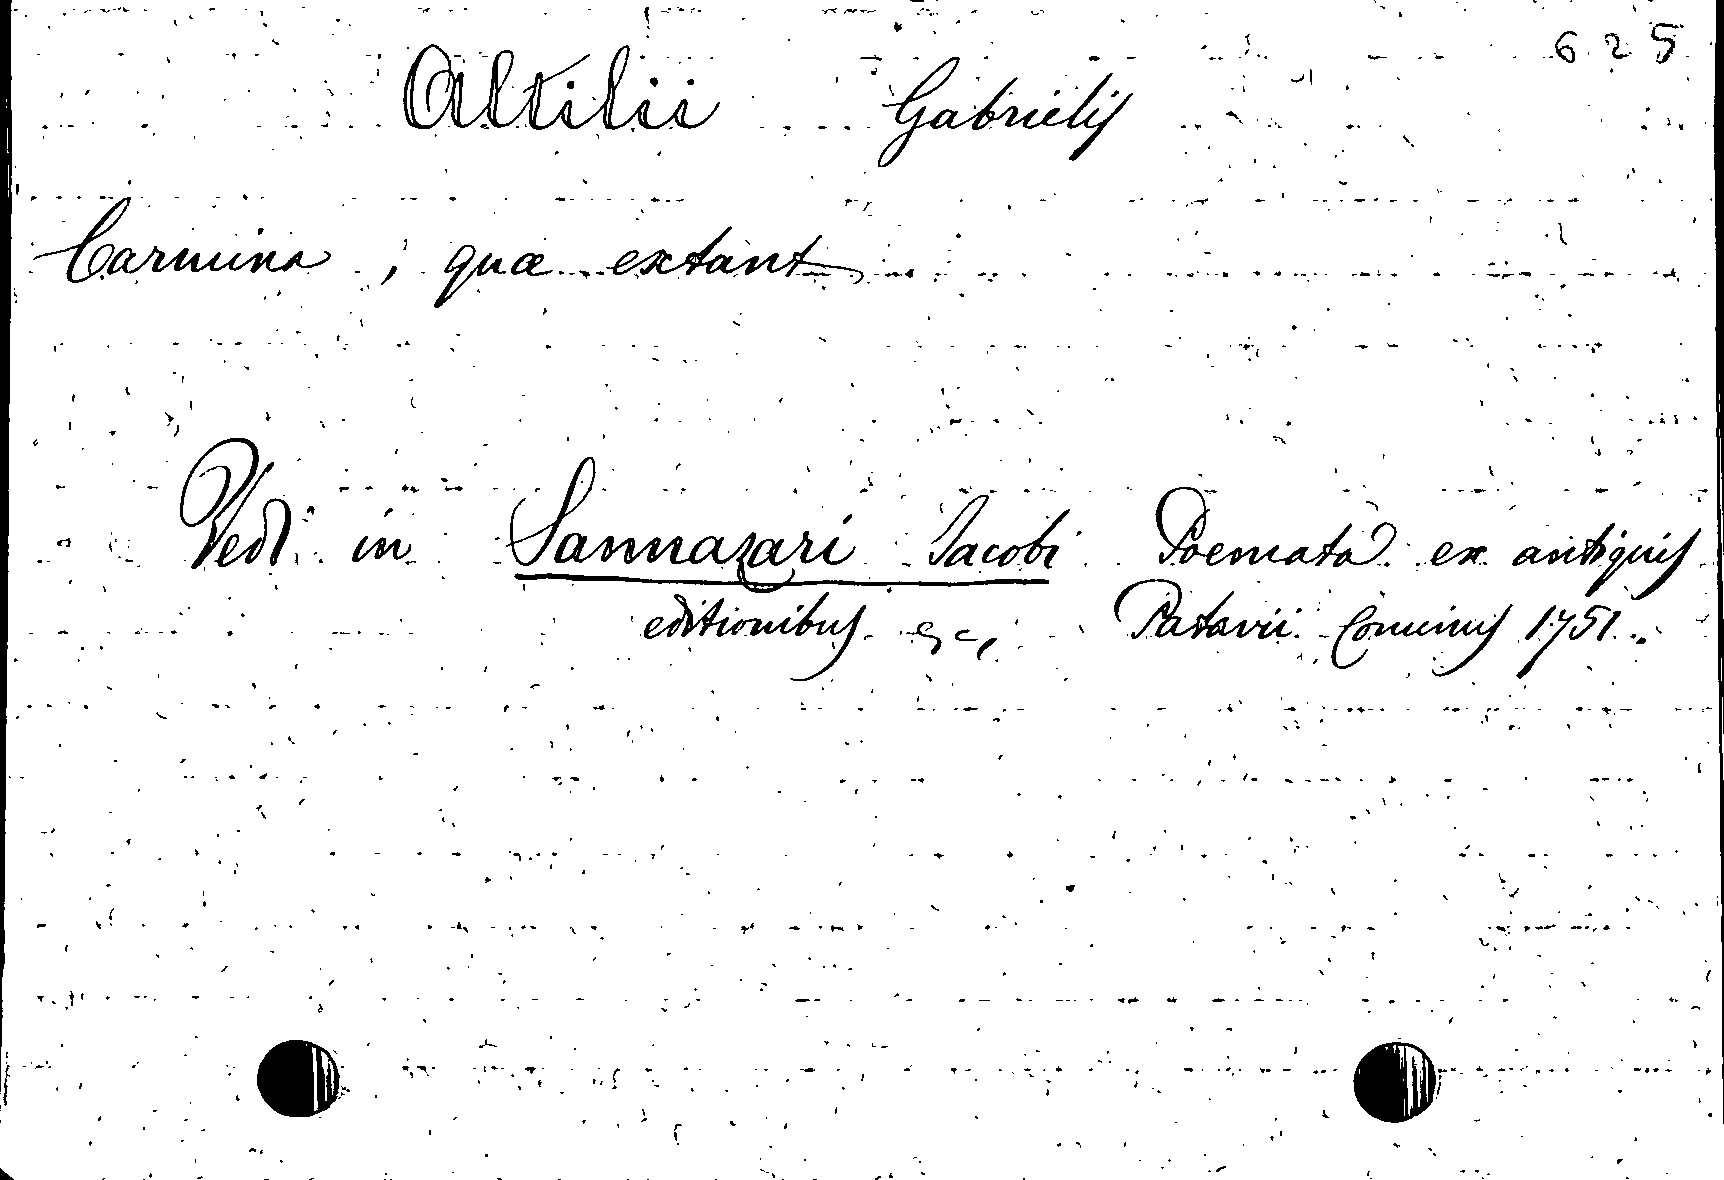 625
Altilii Gabrielis
Carmina, quæ extant
Vedi in Sannazari Jacobi Poemata ex antiquis
editionibus &c, Patavii Cominus 1751.